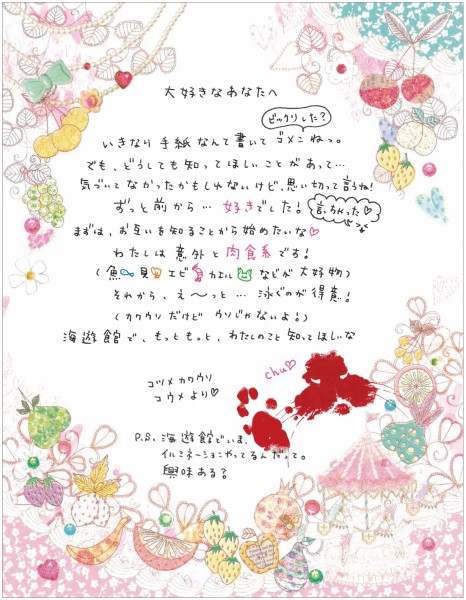 大好きなあなたへ
ビックリした?
いきなり手紙なんて書いてゴメンねっ。
でも、どうしても知ってほしいことがあって…
気づいてなかったかもしれないけど、思い切って言うね!
ずっと前から…好きでした!
言っちゃった♡
まずは、お互いを知ることから始めたいな♡
わたしは意外と肉食系です!
(魚 貝 エビ カエル などが大好物)
それから、え〜っと…泳ぐのが得意!
(カワウソだけどウソじゃないよ!)
海遊館で、もっともっと、わたしのこと知ってほしいな
chu♡
コツメカワウソ
コウメより♡
P.S. 海遊館でいま、
イルミネーションやってるんだって。
興味ある?